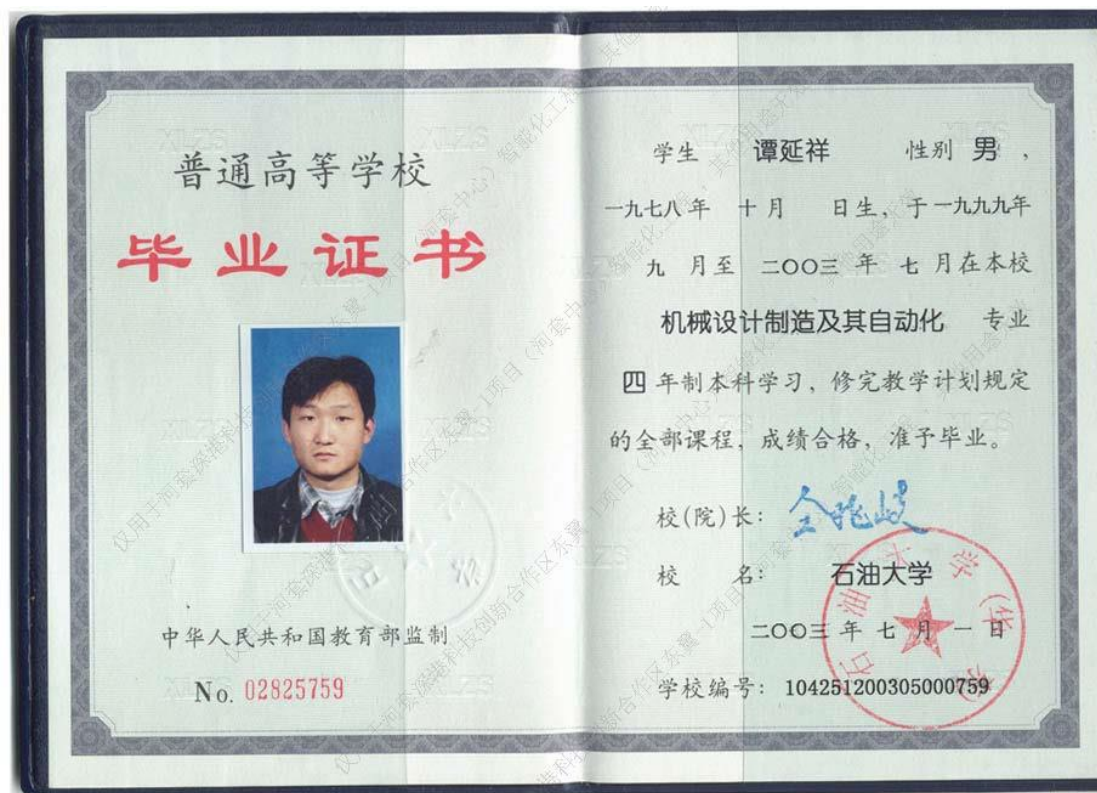 普通高等学校
毕业证书
中华人民共和国教育部监制
No. 02825759
学生 谭延祥 性别 男，
一九七八年 十月 日生，于一九九九年
九 月至 二〇〇三 年 七 月在本校
机械设计制造及其自动化 专业
四 年制本科学习，修完教学计划规定
的全部课程，成绩合格，准予毕业。
校(院)长：
校 名： 石油大学
二〇〇三 年 七 月 一 日
学校编号： 104251200305000759
石油大学(华东)
XLZS
仅用于河套深港科技创新合作区东翼-1项目（河套中心）智能化工程，其他用途无效